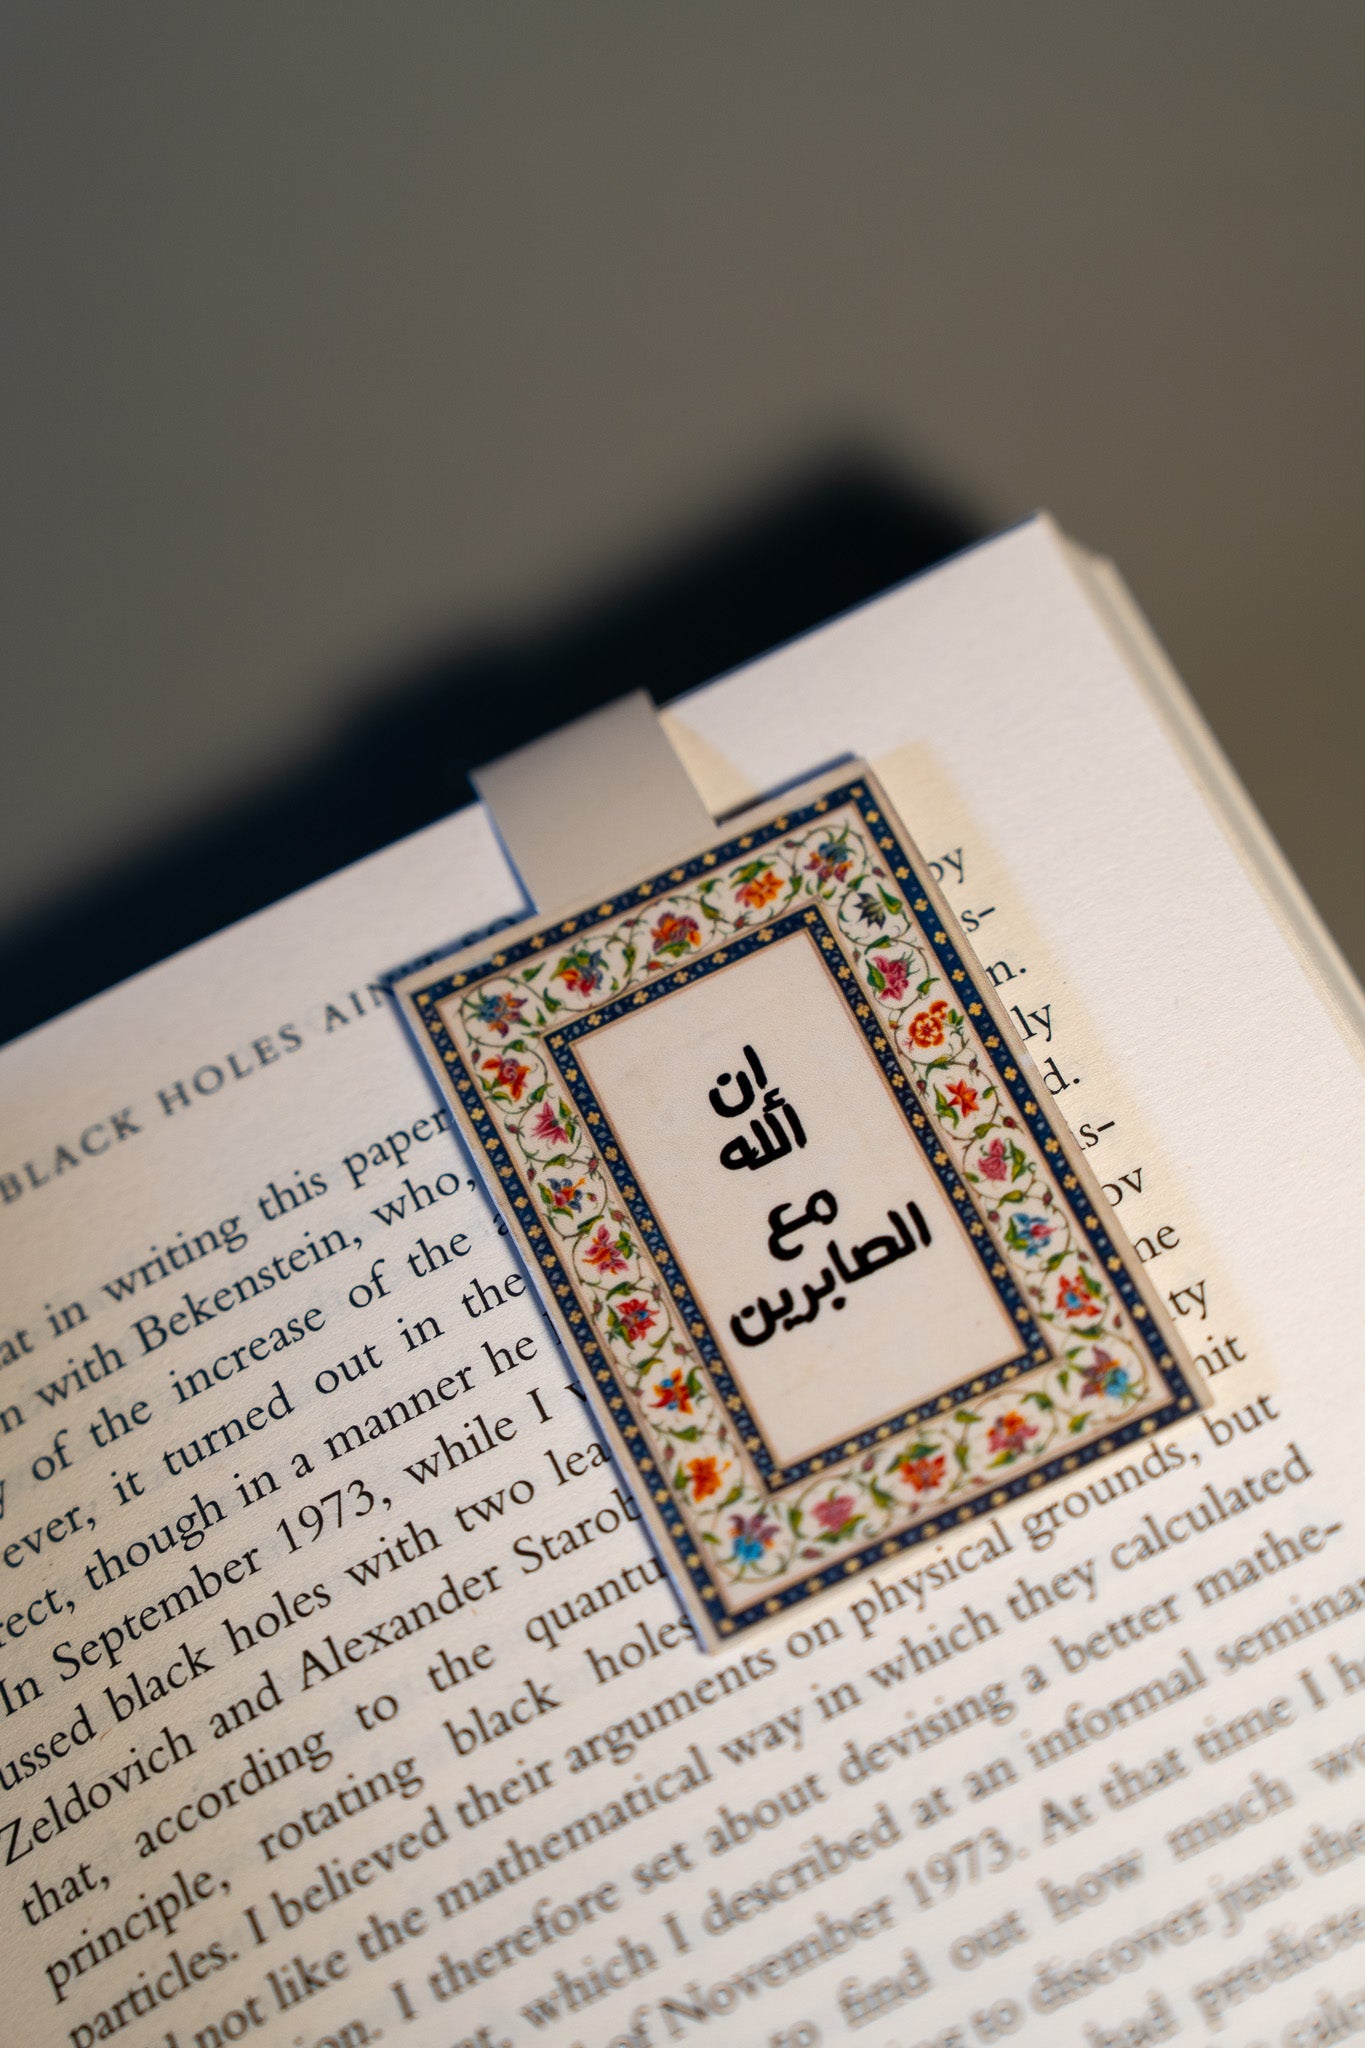 BLACK HOLES AIN
ان
ألله
مع
الصابرين
at in writing this paper
n with Bekenstein, who,
y of the increase of the
ever, it turned out in the
rect, though in a manner he
In September 1973, while I
ussed black holes with two lea
Zeldovich and Alexander Starob
that, according to the quantu
principle, rotating black holes
particles. I believed their arguments on physical grounds, but
not like the mathematical way in which they calculated
ion. I therefore set about devising a better mathe-
which I described at an informal seminar
of November 1973. At that time I h
to find out how much
to discover just the
had predicte
by
s-
n.
ly
d.
is-
ov
ne
ty
nit